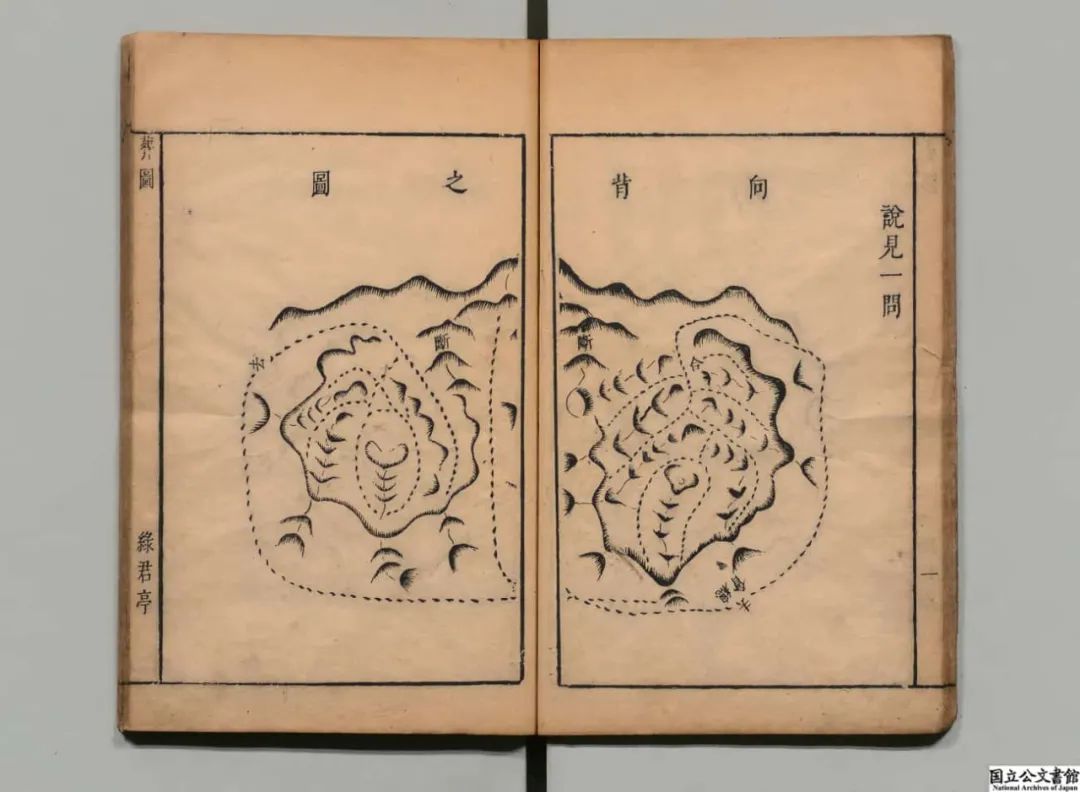 說見一問
向背之圖
斷
合
水會纏
斷
去
葬圖
綠君亭
一
国立公文書館
National Archives of Japan